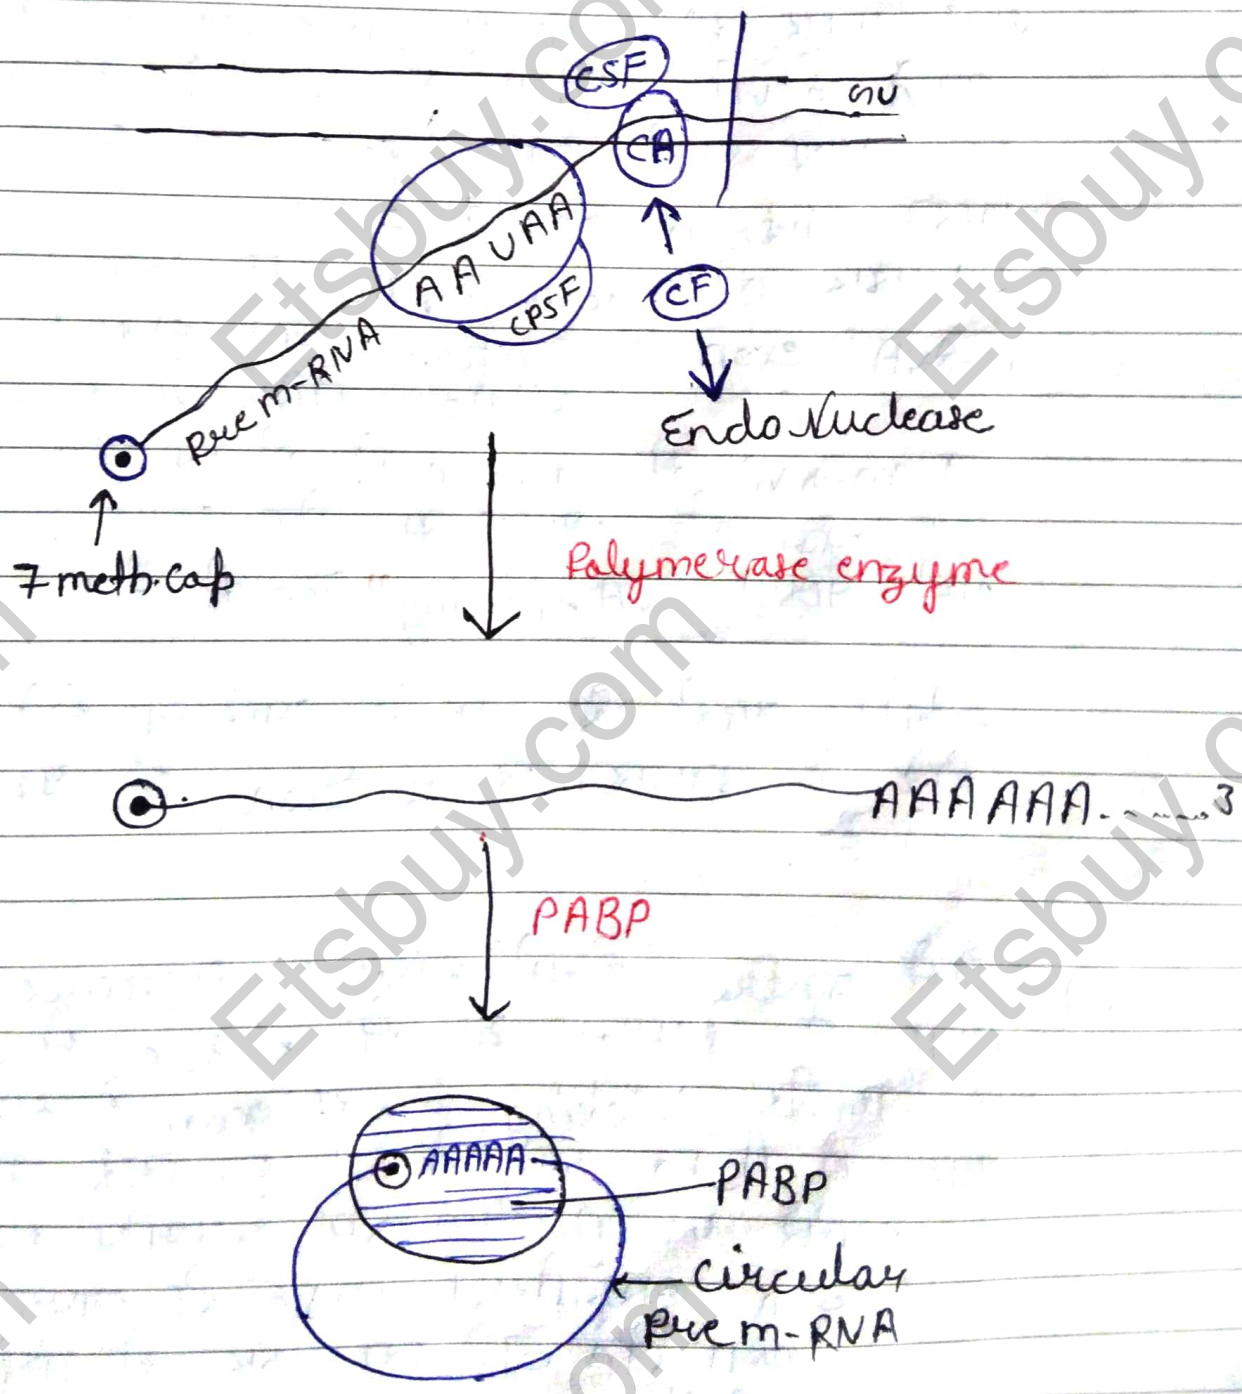 CSF
GU
CA
AAUAA
CPSF
CF
pre m-RNA
Endo Nuclease
7 meth. cap
Polymerase enzyme
AAAAAA........3
PABP
AAAAA
PABP
circular
pre m-RNA
Etsbuy.com
Etsbuy.com
Etsbuy.com
Etsbuy.com